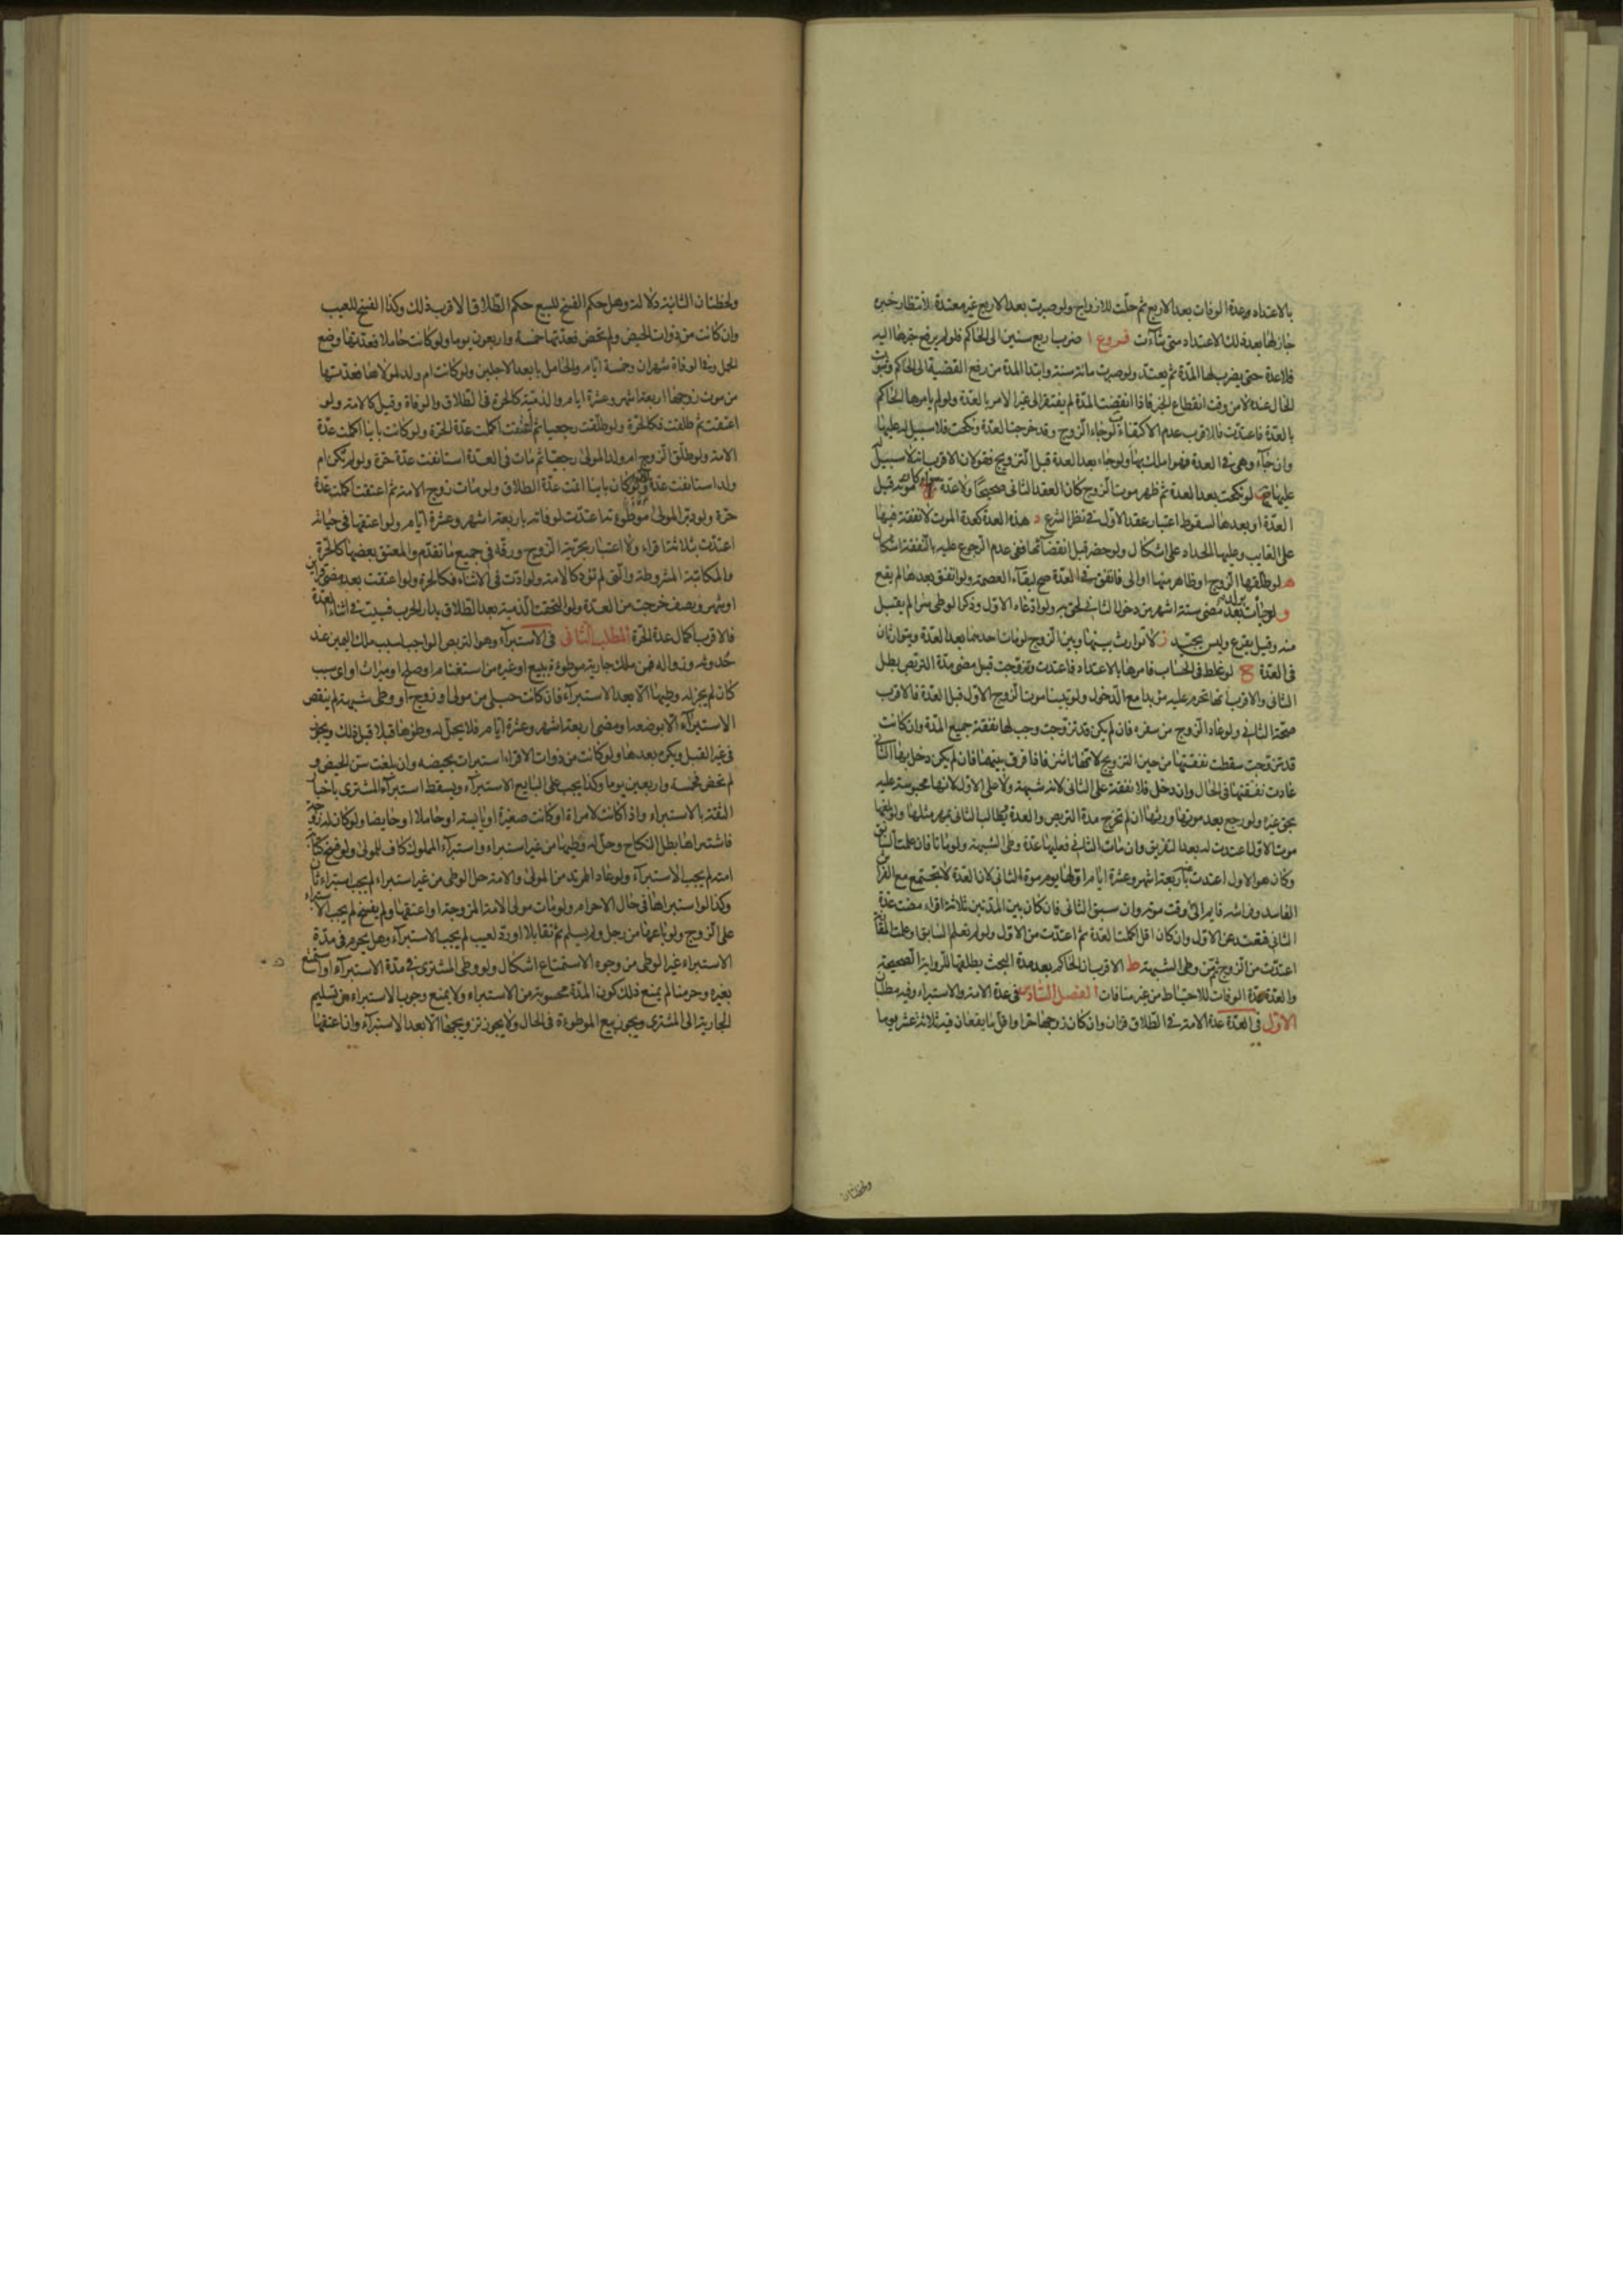 بالاعتداد وعدة الوفات بعد الاربع ثم حلّت للازواج ولو صبرت بعد الاربع غير معتدة لانتظار خبره
جاز لها بعد ذلك الاعتداد متى شاءت فروع ا ضرب اربع سنين الى الحاكم فلو لم يرفع خبرها اليه
فلا عدة حتى يضرب لها المدّة ثم يعتد ولو صبرت مائة سنة وابتدا المدة من رفع القضية الى الحاكم وثبوت
الحال عنده لا من وقت انقطاع الخبر فاذا انقضت المدّة لم يفتقر الى غير الامر بالعدّة ولو لم يامرها الحاكم
بالعدّة فاعتدّت فالاقرب عدم الاكتفاء ب لو جاء الزوج وقد خرجت العدّة ونكحت فلا سبيل له عليها
وان جاء وهي في العدة فهو املك بها ولو جاء بعد العدة قبل التزويج فقولان الاقرب انه لا سبيل له
عليها ج لو نكحت بعد العدة ثم ظهر موت الزوج كان العقد الثاني صحيحا ولا عدة سواء كان موته قبل
العدّة او بعدها لسقوط اعتبار عقد الاول في نظر الشرع د هذه العدة كعدة الموت لا نفقة فيها
على الغايب وعليها الحداد على اشكال ولو حضر قبل انقضائها ففي عدم الرجوع عليه بالنفقة اشكال
ه لو طلقها الزوج او ظاهر منها او الى فاتفق في العدّة صح لبقاء العصمة ولو اتفق بعدها لم يقع
و لو جاءت بولد بعد مضى ستة اشهر من دخول الثاني لحق به ولو ادعاه الاول وذكر الوطى سرا لم يقبل
منه وقيل يقرع وليس بجيد ز لا توارث بينها وبين الزوج لو مات احدهما بعد العدّة ويتوارثان
في العدّة ح لو غلط في الحساب فامرها بالاعتداد فاعتدت وتزوجت قبل مضى مدّة التربص بطل
الثاني والاقرب انها تحرم عليه مؤبدا مع الدخول ولو تبينا موت الزوج الاول قبل العدّة فالاقرب
صحة الثاني ولو عاد الزوج من سفره فان لم يكن قد تزوجت وجب لها نفقة جميع المدّة وان كانت
قد تزوجت سقطت نفقتها من حين التزويج لانها ناشز فاذا فرق بينهما فان لم يكن دخل بها الثاني
عادت نفقتها في الحال وان دخل فلا نفقة على الثاني لانه شبهة ولا على الاول لانها محبوسة عليه
بحق غيره ولو رجع بعد موتها ورثها ان لم تخرج مدة التربص والعدة ويطالب الثاني بمهر مثلها ولو بلغها
موت الاول اعتدت له بعد التفريق وان مات الثاني فعليها عدّة وطى الشبهة ولو ماتا فان علمت السابق
وكان هو الاول اعتدت باربعة اشهر وعشرة ايام اولها يوم موت الثاني لان العدة لا تجتمع مع الفراش
الفاسد وفراشه قايم الى وقت موته وان سبق الثاني فان كان بين المدّتين ثلاثة اقراء مضت عدّة
الثاني فتعتد عن الاول وان كان اقل اكملت العدة ثم اعتدّت من الاول ولو لم تعلم السابق او علمت المقارنة
اعتدّت من الزوج ثم من وطى الشبهة ط الاقرب ان الحاكم بعد مدة البحث يطلقها للرواية الصحيحة
والعدّة عدّة الوفات للاحتياط من غير منافات الفصل السّادس في عدة الامة والاستبراء وفيه مطلبان
الاوّل في العدّة عدة الامة في الطلاق قران وان كان زوجها حرا واقل ما يقعان فيه ثلاثة عشر يوما
ولحظتان
ولحظتان الثانية دلالة وهل حكم الفسخ للبيع حكم الطلاق الاقرب ذلك وكذا الفسخ للعيب
وان كانت من ذوات الحيض ولم تحض فعدّتها خمسة واربعون يوما ولو كانت حاملا فعدّتها وضع
الحمل وفي الوفاة شهران وخمسة ايّام والحامل بابعد الاجلين ولو كانت ام ولد لمولاها فعدّتها
من موت زوجها اربعة اشهر وعشرة ايام والذمّية كالحرة في الطلاق والوفاة وقيل كالامة ولو
اعتقت ثم طلقت فكالحرّة ولو طلّقت رجعيا ثم اعتقت اكملت عدّة الحرّة ولو كانت باينا اكملت عدّة
الامة ولو طلّق الزوج ام ولد المولى رجعيّا ثم مات في العدّة استانفت عدّة حرّة ولو لم تكن ام
ولد استانفت عدّة امة ولو كان باينا اتمت عدّة الطلاق ولو مات زوج الامة ثم اعتقت اكملت عدّة
حرّة ولو دبّر المولى موطوءته اعتدّت لوفاته باربعة اشهر وعشرة ايّام ولو اعتقها في حياته
اعتدّت بثلاثة اقراء ولا اعتبار بحرّية الزوج ورقّه في جميع ما تقدّم والمعتق بعضها كالحرّة
والمكاتبة المشروطة والتي لم تؤد كالامة ولو ادّت في الاثناء فكالحرة ولو اعتقت بعد مضى قراين
او شهر ونصف خرجت من العدّة ولو التحقت الذمية بعد الطلاق بدار الحرب فسبيت في اثناء العدّة
فالاقرب اكمال عدة الحرّة المطلب الثاني في الاستبراء وهو التربص الواجب بسبب ملك اليمين عند
حدوثه وزواله فمن ملك جارية موطوءة ببيع او غيره من استغنام او صلح او ميراث او اي سبب
كان لم يجز له وطيها الا بعد الاستبراء فان كانت حبلى من مولى او زوج او وطى شبهة لم ينقض
الاستبراء الا بوضعه او مضى اربعة اشهر وعشرة ايّام فلا يحل له وطؤها قبلا قبل ذلك ويجوز
في غير القبل ويكره بعدها ولو كانت من ذوات الاقراء استبرات بحيضه وان بلغت سن الحيض و
لم تحض فخمسة واربعين يوما وكذا يجب على البايع الاستبراء ويسقط استبراء المشترى باخبار
الثقة بالاستبراء واذا كانت لامراة او كانت صغيرة او يايسة او حاملا او حايضا ولو كان له زوجة
فاشتراها بطل النكاح وحلّ له وطيها من غير استبراء واستبراء المملوك كاف للمولى ولو فسخ كتابة
امته لم يجب الاستبراء ولو عاد المرتد من المولى والامة حل الوطى من غير استبراء لم يجب استبراء ثان
وكذا لو استبراها في حال الاحرام ولو مات مولى الامة المزوجة او اعتقها ولم يفسخ لم يجب الاستبراء
على الزوج ولو باعها من رجل ولم يسلم ثم تقايلا او رد لعيب لم يجب الاستبراء وهل يحرم في مدّة
الاستبراء غير الوطى من وجوه الاستمتاع اشكال ولو وطى المشترى في مدّة الاستبراء او استمتع
بغيره وحرمنا لم يمنع ذلك كون المدّة محسوبة من الاستبراء ولا يمنع وجوب الاستبراء من تسليم
الجارية الى المشترى ويجوز بيع الموطوءة في الحال ولا يجوز تزويجها الا بعد الاستبراء وان اعتقها